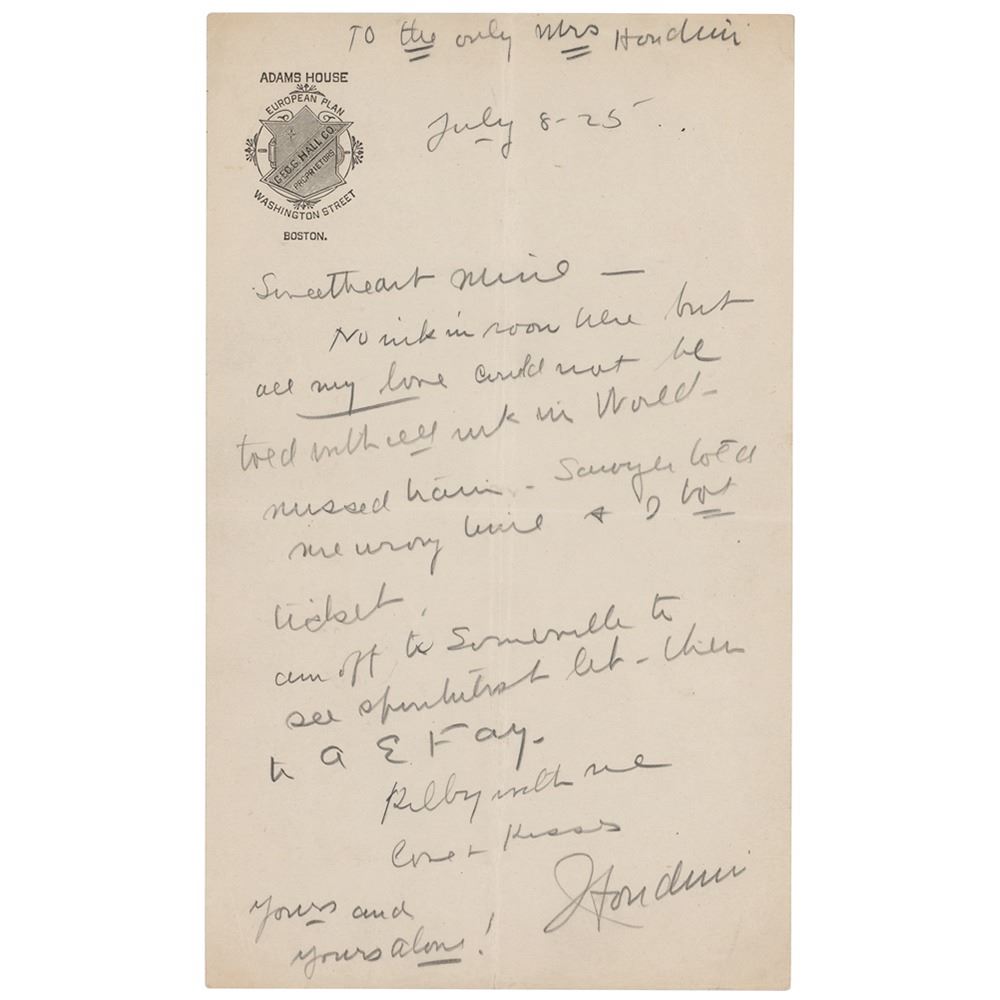 TO the only Mrs Houdini
ADAMS HOUSE
EUROPEAN PLAN
GEO. G. HALL CO.
PROPRIETORS
WASHINGTON STREET
BOSTON.
July 8-25
Sweetheart Mine —
No ink in room here but
all my love could not be
told with all ink in World-
missed train - Sawyer told
me wrong time & I bot
ticket.
am off to Somerville to
see spiritualist let - then
to A E Fay-
Kilby with me
Love + Kisses
Houdini
yours and
yours alone!